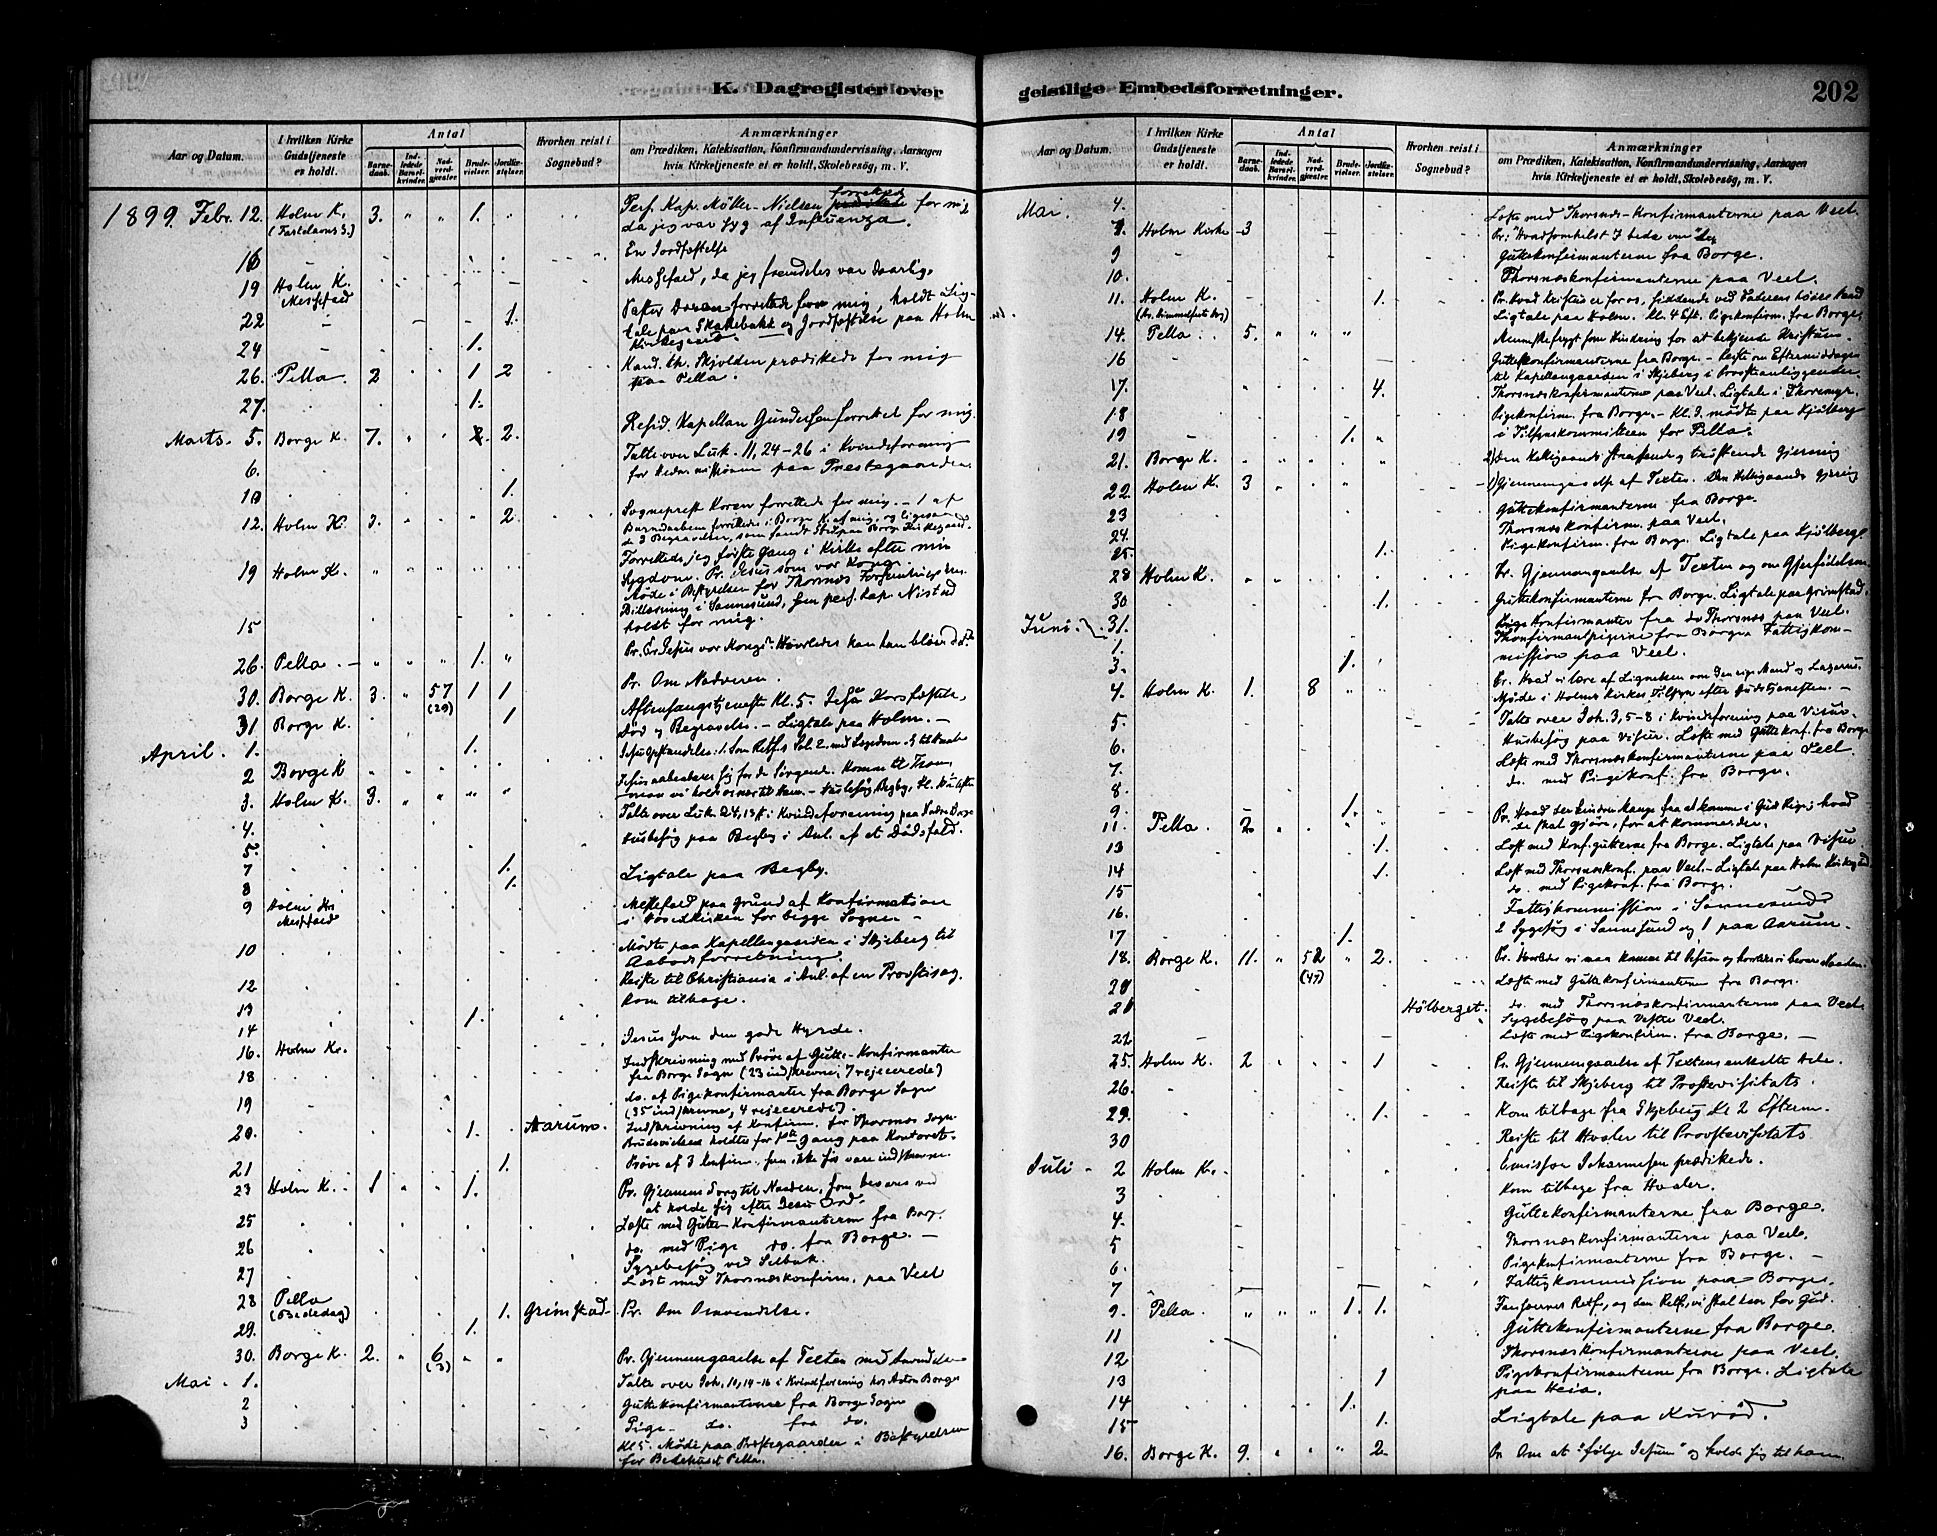 K. Dagregister over
Aar og Datum.
I hvilken Kirke Gudstjeneste er holdt.
Antal
Barne-daab.
Ind-ledede Barsel-kvinder.
Nad-verd-gjester.
Brude-vielser.
Jordfæ-stelser.
Hvorhen reist i Sognebud?
Anmærkninger
om Prædiken, Katekisation, Konfirmandundervisning, Aarsagen
hvis Kirketjeneste ei er holdt, Skolebesøg, m. V.
1899. Febr. 12. Holm K. 3. " " 1. " Pers. Kap. Møller-Nielsen forrettede for mig
(Fastelavns S.) da jeg var syg af Influenza.
16 En Jordfæstelse
19 Holm K. Messefald, da jeg fremdeles var daarlig.
Messefald
22 1. Pastor forrettede for mig, holdt Lig-
tale paa Skakkebakk og Jordfæstelse paa Holm
24 1. Kirkegaard.
26. Pella. 2 1 2 Kand. th. Skjolden prædikede for mig
paa Pella.
27. 1.
Marts. 5. Borge K. 7. 2. Resid. Kapellan Gundersen forrettet for mig.
6. Talte over Luk. 11, 24-26 i Kvindeforening
paa Prestegaarden
10 1.
12. Holm K. 3. 2. Sogneprest Koren forrettede for mig. - 1 af
Barnedaabene forrettedes i Borge K. af mig, og ligesaa
de 3 Begravelser, som fandt Sted paa Borge Kirkegaard.
19 Holm K. Forrettede jeg første Gang i Kirke efter min
Sygdom. Pr. Jesus som vor Konge.
Møde i Bestyrelsen for Thorsnæs
i Sannesund, som pers. Kap. Nistad
15 holdt for mig.
26. Pella. 1. " Pr. Er Jesus vor Konge? Hvorledes kan han blive det?
30. Borge K. 3. " 57 1 1 Pr. Om Nadveren.
(29) Aftensangstjeneste Kl. 5. Jesu Korsfæstelse,
31 Borge K. 1 Død og Begravelse. - Ligtale paa Holm. -
April. 1. 1.
2 Borge K
3. Holm K. 3.
4. Talte over Luk. 24, 13 ff. i Kvindeforening paa Nedre Borge
5. Husbesøg paa Begby i Anl. af et Dødsfald.
7 1. Ligtale paa Begby.
8 1.
9 Holm K. Messefald paa Grund af Konfirmation
Messefald i Hovedkirken for begge Sogne. -
10 Mødte paa Kapellangaarden i Skjeberg til
Aabodsforretning.
12 Reiste til Christiania i Anl. af en Provstisag.
13 1. Kom tilbage.
14
16. Holm K. Jesus som den gode Hyrde.
18 Indskrivning med Prøve af Gutte-Konfirmanter
fra Borge Sogn (23 indskrevne, 7 rejecerede)
19 do. af Pigekonfirmanter fra Borge Sogn
(35 indskrevne, 4 rejecerede).
20. 1. Aarum. Indskrivning af Konfirm. for Thorsnæs Sogn.
holdtes for 1ste Gang paa Kontoret.
21 1. Prøve af 3 Konfirm., som ikke før vare indskrevne.
23 Holm K. 1 1. Pr. Gjennem Sorg til Naaden, som bevares ved
at holde sig efter Jesu Ord.
25 Læste med Gutte-Konfirmanterne fra Borg.
26 do. med Pige do. fra Borge. -
27 Sygebesøg ved Selbak.
Læst med Thorsnæskonfirm. paa Veel
28 Pella 1. Grimstad Pr. Om Omvendelse.
(Bededag)
29. 1.
30. Borge K. 2. " 6 " " Pr. Gjennemgaaelse af Texten med Anvendelse
(3)
Mai. 1. Talte over Joh. 10, 14-16 i Kvindeforening hos Anton Borge
2 Guttekonfirmanterne fra Borge Sogn
3 Pige- do. fra do.
Kl 5. Møde paa Prestegaarden i Bestyrelsen
for Bedehuset Pella.
geistlige Embedsforretninger.
202
Aar og Datum.
I hvilken Kirke Gudstjeneste er holdt.
Antal
Barne-daab.
Ind-ledede Barsel-kvinder.
Nad-verd-gjester.
Brude-vielser.
Jordfæ-stelser.
Hvorhen reist i Sognebud?
Anmærkninger
om Prædiken, Katekisation, Konfirmandundervisning, Aarsagen
hvis Kirketjeneste ei er holdt, Skolebesøg, m. V.
Mai. 4. Læste med Thorsnæs-Konfirmanterne paa Veel.
7. Holm Kirke 3 Pr: "Hvadsomhelst I bede om"
9 Guttekonfirmanterne fra Borge.
10. Thorsnæskonfirmanterne paa Veel.
11. Holm K. 1. Pr. Hvad Kristus er for os, siddende ved Faderens høire Haand
(Kr. Himmelfarts Dag) Ligtale paa Holm. Kl. 4 Eft. Pigekonfirm. fra Borge,
14. Pella. 5. Menneskefrygt som Hindring for at bekjende Kristum.
16 Guttekonfirmanterne fra Borge. - Reiste om Eftermiddagen
til Kapellangaarden i Skjeberg i Provstianliggender.
17. 4. Thorsnæskonfirmanterne paa Veel. Ligtale i Thorsmyr.
18 Pigekonfirm. fra Borge. - Kl. 3. mødte paa Kjølberg
19 1. i Tilsynskommitteen for Pella.
21. Borge K. Den Helligaands straffende og trøstende Gjerning
22. Holm K. 3 Gjennemgaaelse af Texten. Den Helligaands Gjerning
23 Guttekonfirmanterne fra Borge.
24. Thorsnæskonfirm. paa Veel.
25. 1. Pigekonfirm. fra Borge. Ligtale paa Kjølberg.
28 Holm K. Pr. Gjennemgaaelse af Texten og om Gjenfødelsen
30 1. Guttekonfirmanterne fra Borge. Ligtale paa Grimstad.
31. Konfirmanter fra Thorsnæs paa Veel.
Juni. 1. Konfirmantpigerne fra Borge. Fattigkom-
3. 1. mission paa Veel.
4. Holm K. 1. 8 Pr. Hvad vi lære af Lignelsen om Den rige Mand og Lazarus.
Møde i Holms Kirkes Tilsyn efter Gudstjenesten. -
5. Talte over Joh. 3, 5-8 i Kvindeforening paa Visur.
6. Husbesøg paa Visur. Læste med Guttekonf. fra Borge
7. Læste med Thorsnæskonfirmanterne paa Veel.
8. do. med Pigekonf. fra Borge.
9. 1.
11. Pella. 2. Pr. Hvad der hindrer Mange fra at komme i Guds Rige; hvad
de skal gjøre, for at komme der.
13 1. Læst med Konf.gutterne fra Borge. Ligtale paa Visur.
14 1. Læst med Thorsnæskonf. paa Veel. - Ligtale paa Holm Kirkegaard.
15 do. med Pigekonf. fra Borge.
16. Fattigkommission i Sannesund.
17 1. 2 Sygebesøg i Sannesund og 1 paa Aarum.
18. Borge K. 11. " 52 " 2. Pr. Hvorledes vi maa komme til Jesus og hvorledes vi bevare Naaden.
(47)
20 Læste med Guttekonfirmanterne fra Borge.
21 Hølberget. do. med Thorsnæskonfirmanterne paa Veel
Sygebesøg paa Vestre Veel.
22 Læste med Pigekonfirm. fra Borge. -
25. Holm K. 2 1 Pr. Gjennemgaaelse af Textens enkelte Dele.
26. Reiste til Skjeberg til Provstevisitats.
29. 1. Kom tilbage fra Skjeberg Kl 2 Efterm.
30 Reiste til Hvaler til Provstevisitats
Juli - 2 Holm K. Emissær Johannesen prædikede.
3 Kom tilbage fra Hvaler.
4. Guttekonfirmanterne fra Borge.
5 Thorsnæskonfirmanterne paa Veel.
6. Pigekonfirmanterne fra Borge. -
7 Fattigkommission paa Borge.
9. Pella. " " " 1. 1. Farisæernes Retf., og den Retf., vi skal have for Gud.
11 Guttekonfirmanterne fra Borge.
12 Thorsnæskonfirmanterne paa Veel.
13 1 Pigekonfirmanterne fra Borge. Ligtale
paa Heia.
14 1.
15 1. Ligtale paa Kurød.
16. Borge K. 9. 2 Pr. Om at "følge Jesum" og holde sig til ham.